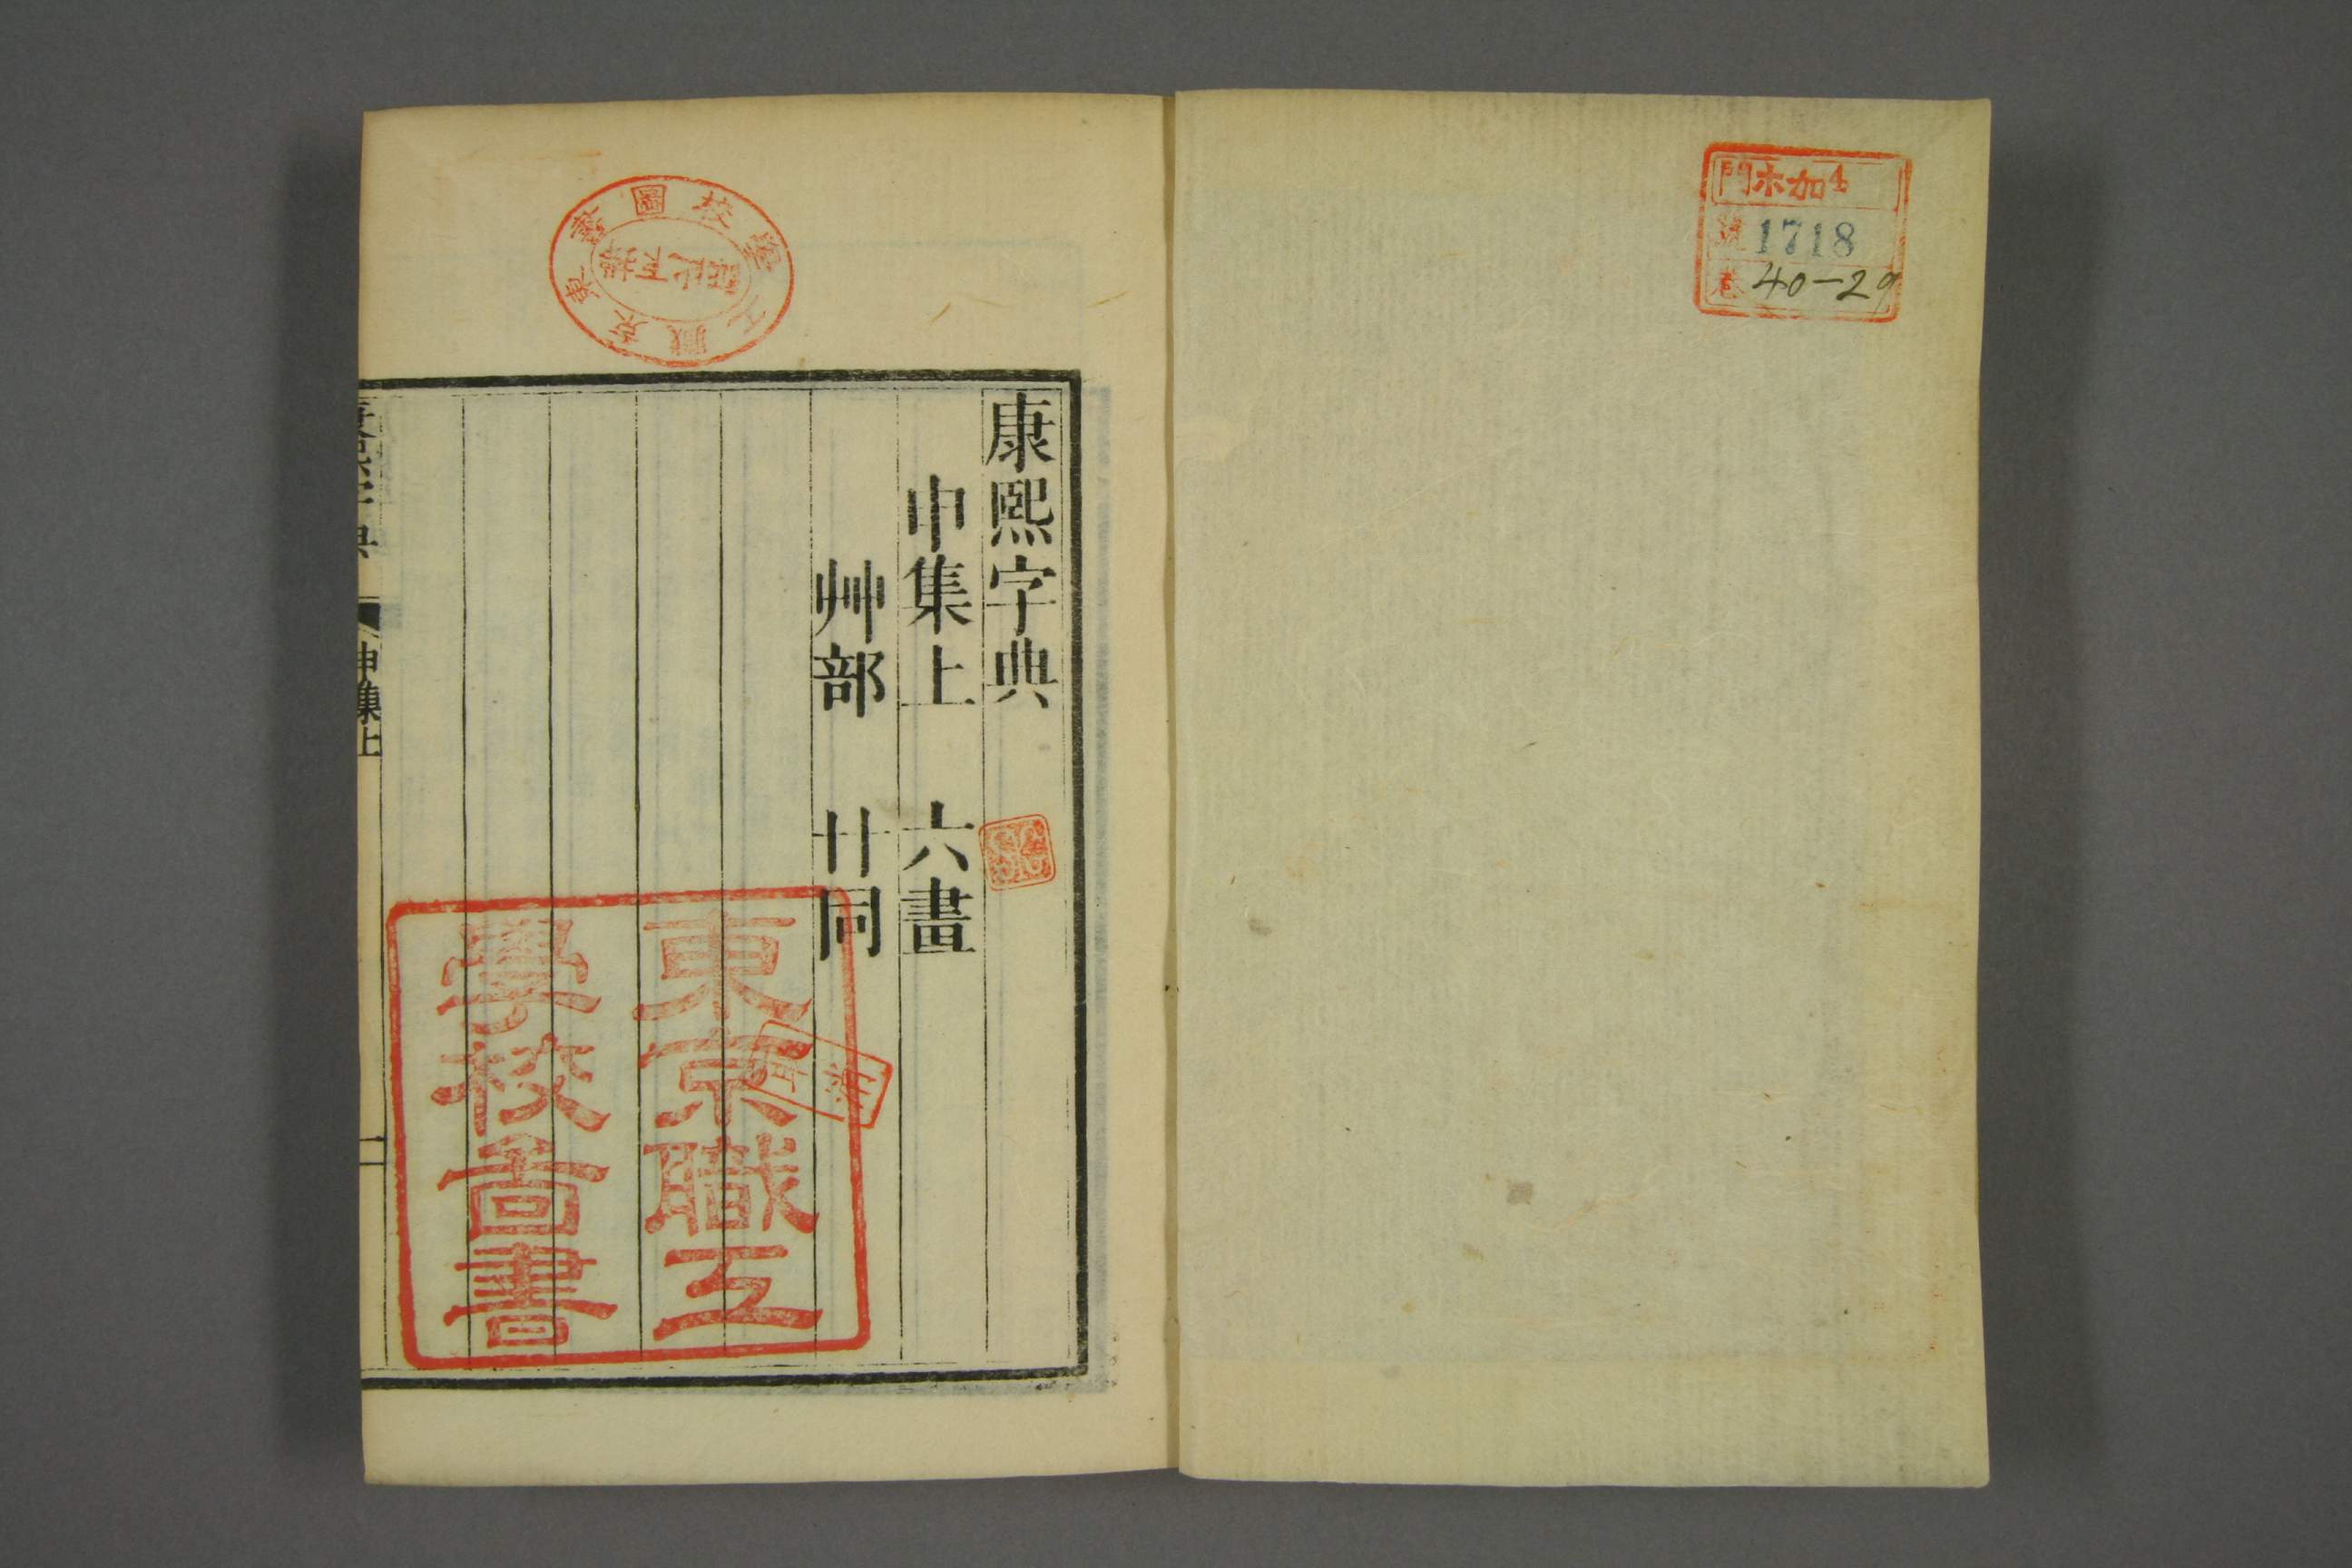 門ホ加4
號1718
卷40-29
康熙字典
申集上 六畫
艸部 廿同
東京職工
學校啚書
東京職工學校圖書
康熙字典
申集上
一